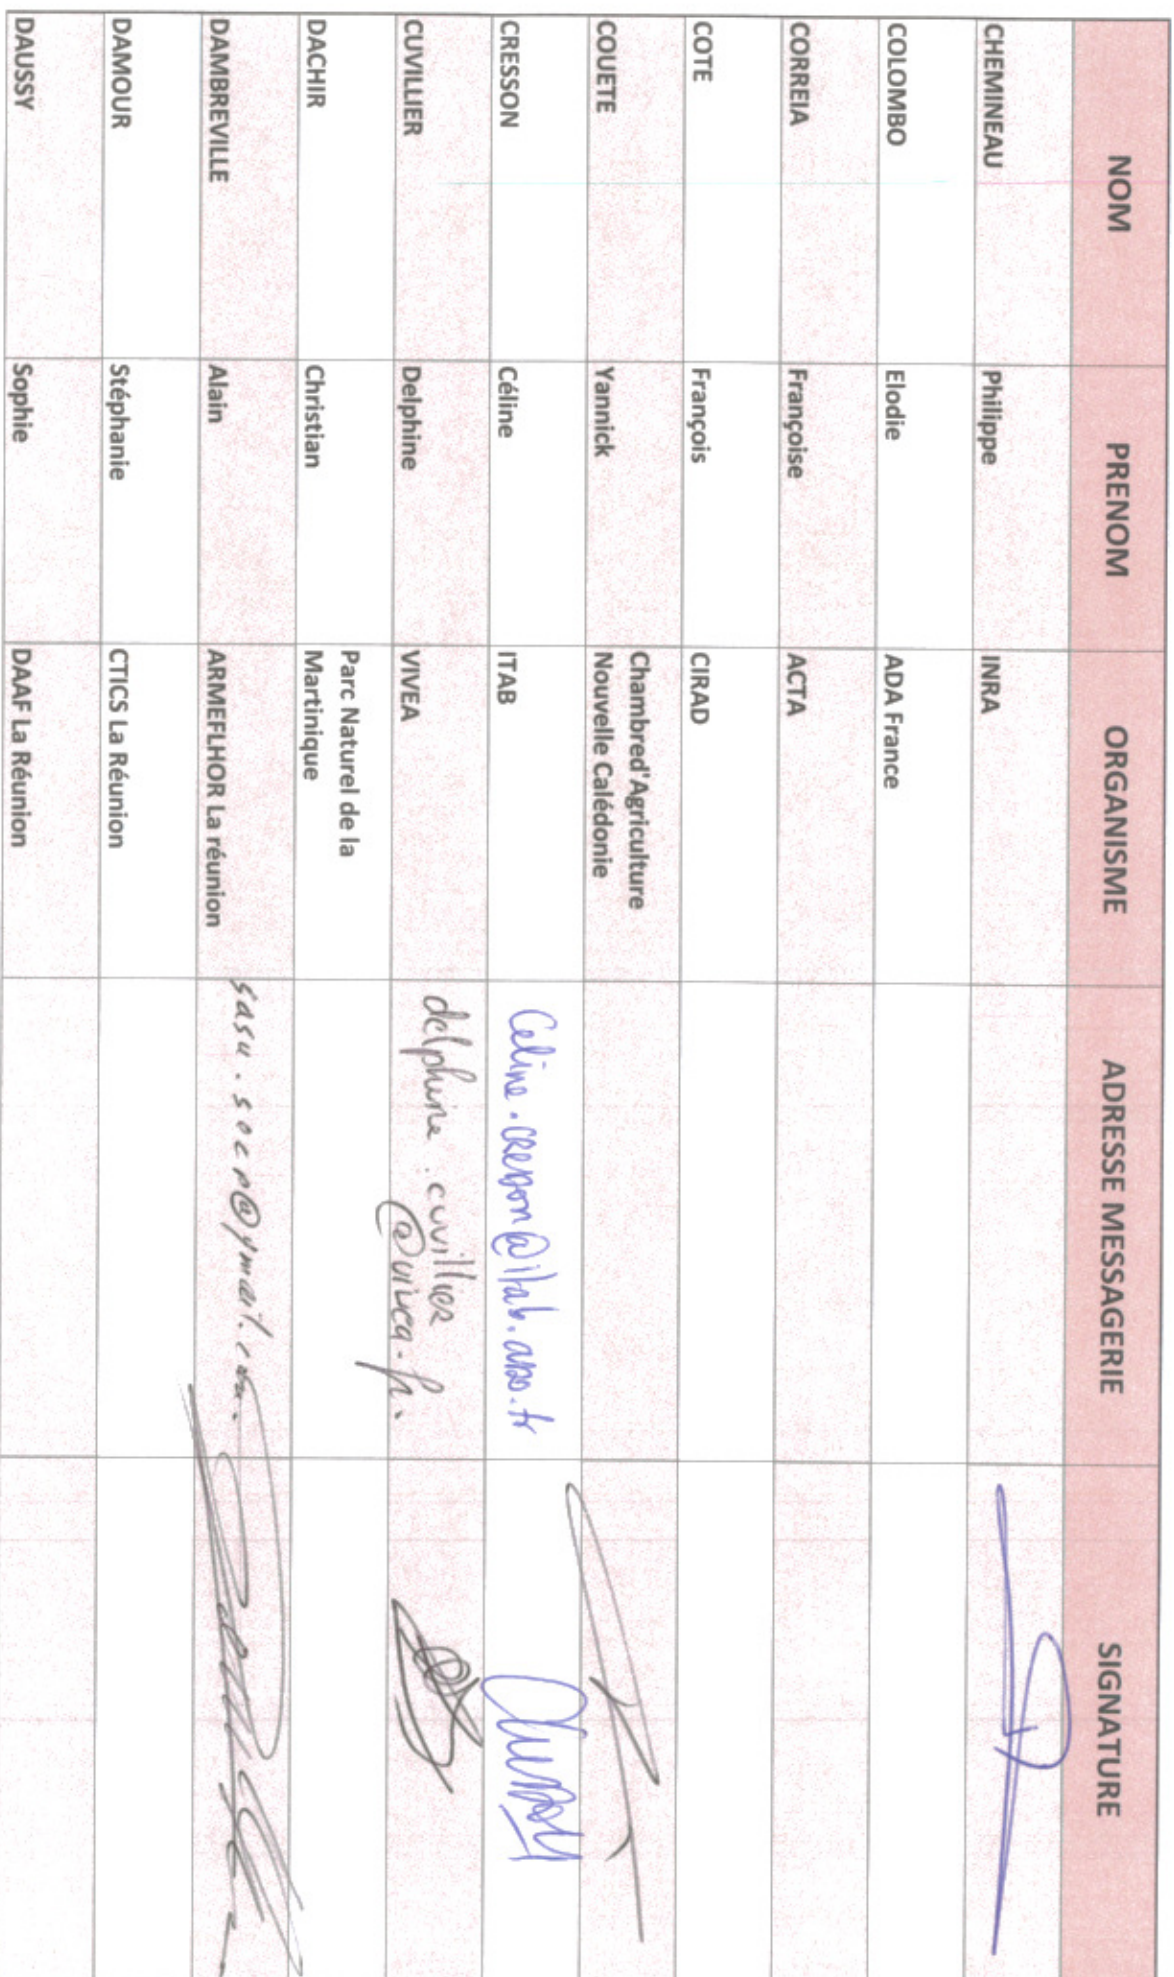 NOM PRENOM ORGANISME ADRESSE MESSAGERIE SIGNATURE
CHEMINEAU Philippe INRA
COLOMBO Elodie ADA France
CORREIA Françoise ACTA
COTE François CIRAD
COUETE Yannick Chambred'Agriculture
Nouvelle Calédonie
CRESSON Céline ITAB Celine.cresson@itab.asso.fr
CUVILLIER Delphine VIVEA delphine.cuvillier
@vivea.fr.
DACHIR Christian Parc Naturel de la
Martinique
DAMBREVILLE Alain ARMEFLHOR La réunion
DAMOUR Stéphanie CTICS La Réunion
DAUSSY Sophie DAAF La Réunion